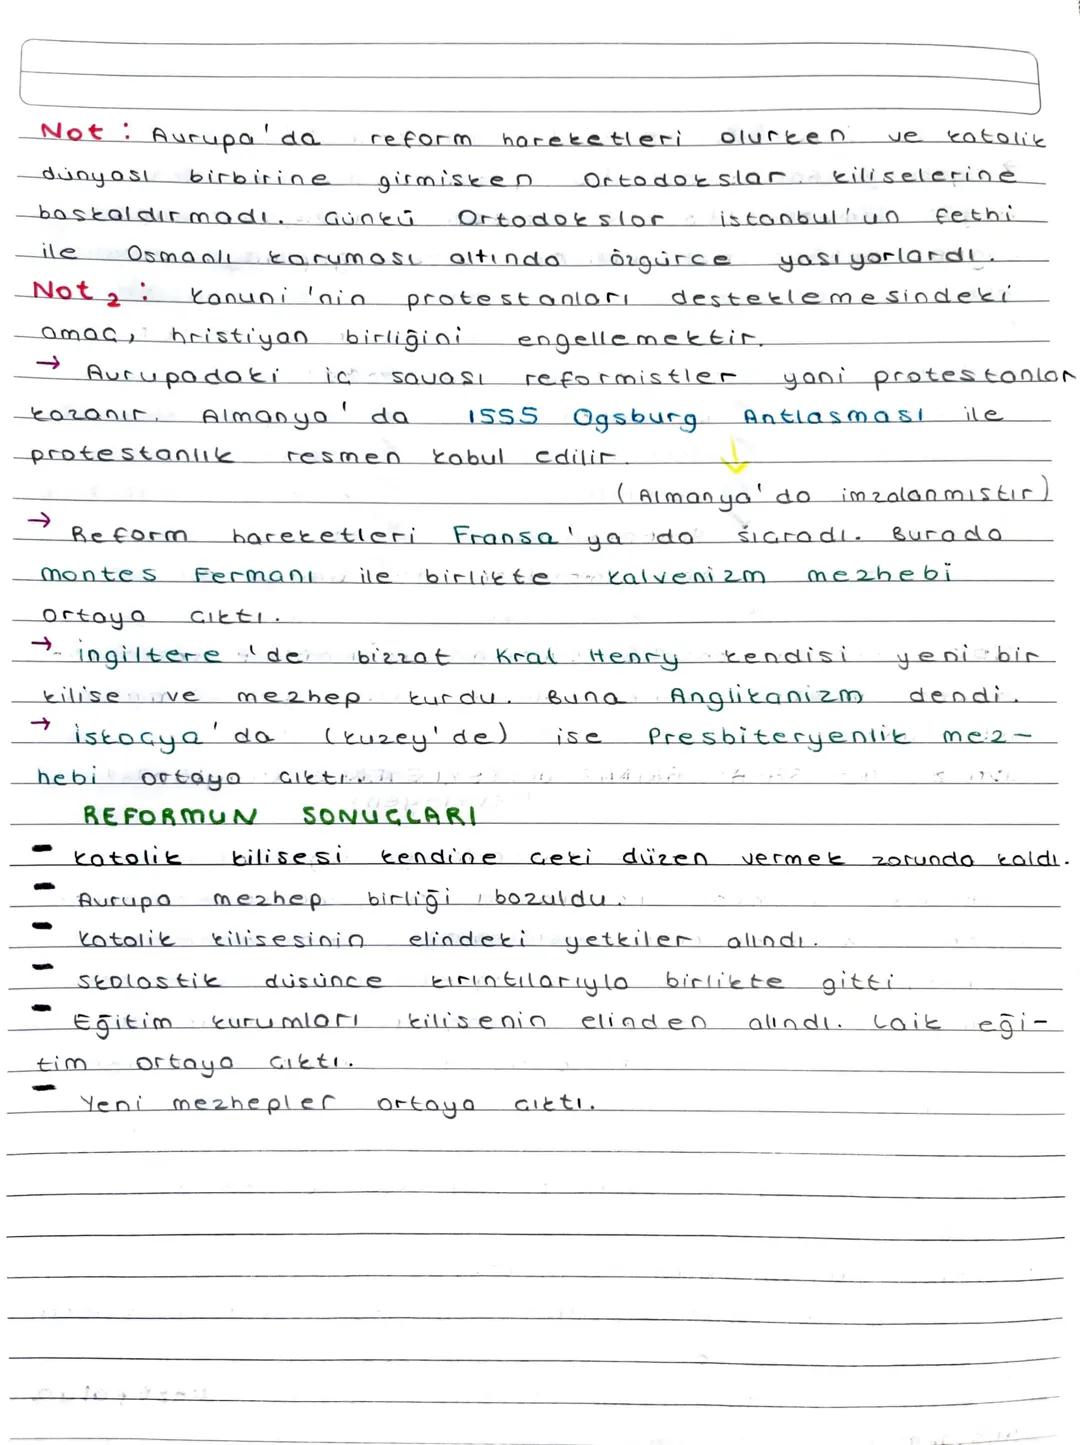 Not : Avrupa'da reform hareketleri olurken ve katolik
dünyası birbirine girmişken Ortodokslar kiliselerine
başkaldırmadı. Günkü Ortodokslar istanbul'un fethi
ile Osmanlı koruması altında özgürce yaşıyorlardı.
Not 2 : Kanuni'nin protestanları desteklemesindeki
amaç, hristiyan birliğini engellemektir.
→ Avrupadaki iç savaşı reformistler yani protestanlar
kazanır. Almanya'da 1555 Ogsburg Antlaşması ile
protestanlık resmen kabul edilir.
↓
(Almanya'da imzalanmıştır)
→ Reform hareketleri Fransa'ya da sıçradı. Burada
montes Fermanı ile birlikte Kalvenizm mezhebi
ortaya çıktı.
→ ingiltere'de bizzat Kral Henry kendisi yeni bir
kilise ve mezhep kurdu. Buna Anglikanizm dendi.
→ iskoçya'da (kuzey'de) ise Presbiteryenlik mez-
hebi ortaya çıktı.
REFORMUN SONUÇLARI
- Katolik kilisesi kendine çeki düzen vermek zorunda kaldı.
- Avrupa mezhep birliği bozuldu.
- Katolik kilisesinin elindeki yetkiler alındı.
- Skolastik düşünce kırıntılarıyla birlikte gitti.
- Eğitim kurumları kilisenin elinden alındı. Laik eği-
tim ortaya çıktı.
- Yeni mezhepler ortaya çıktı.